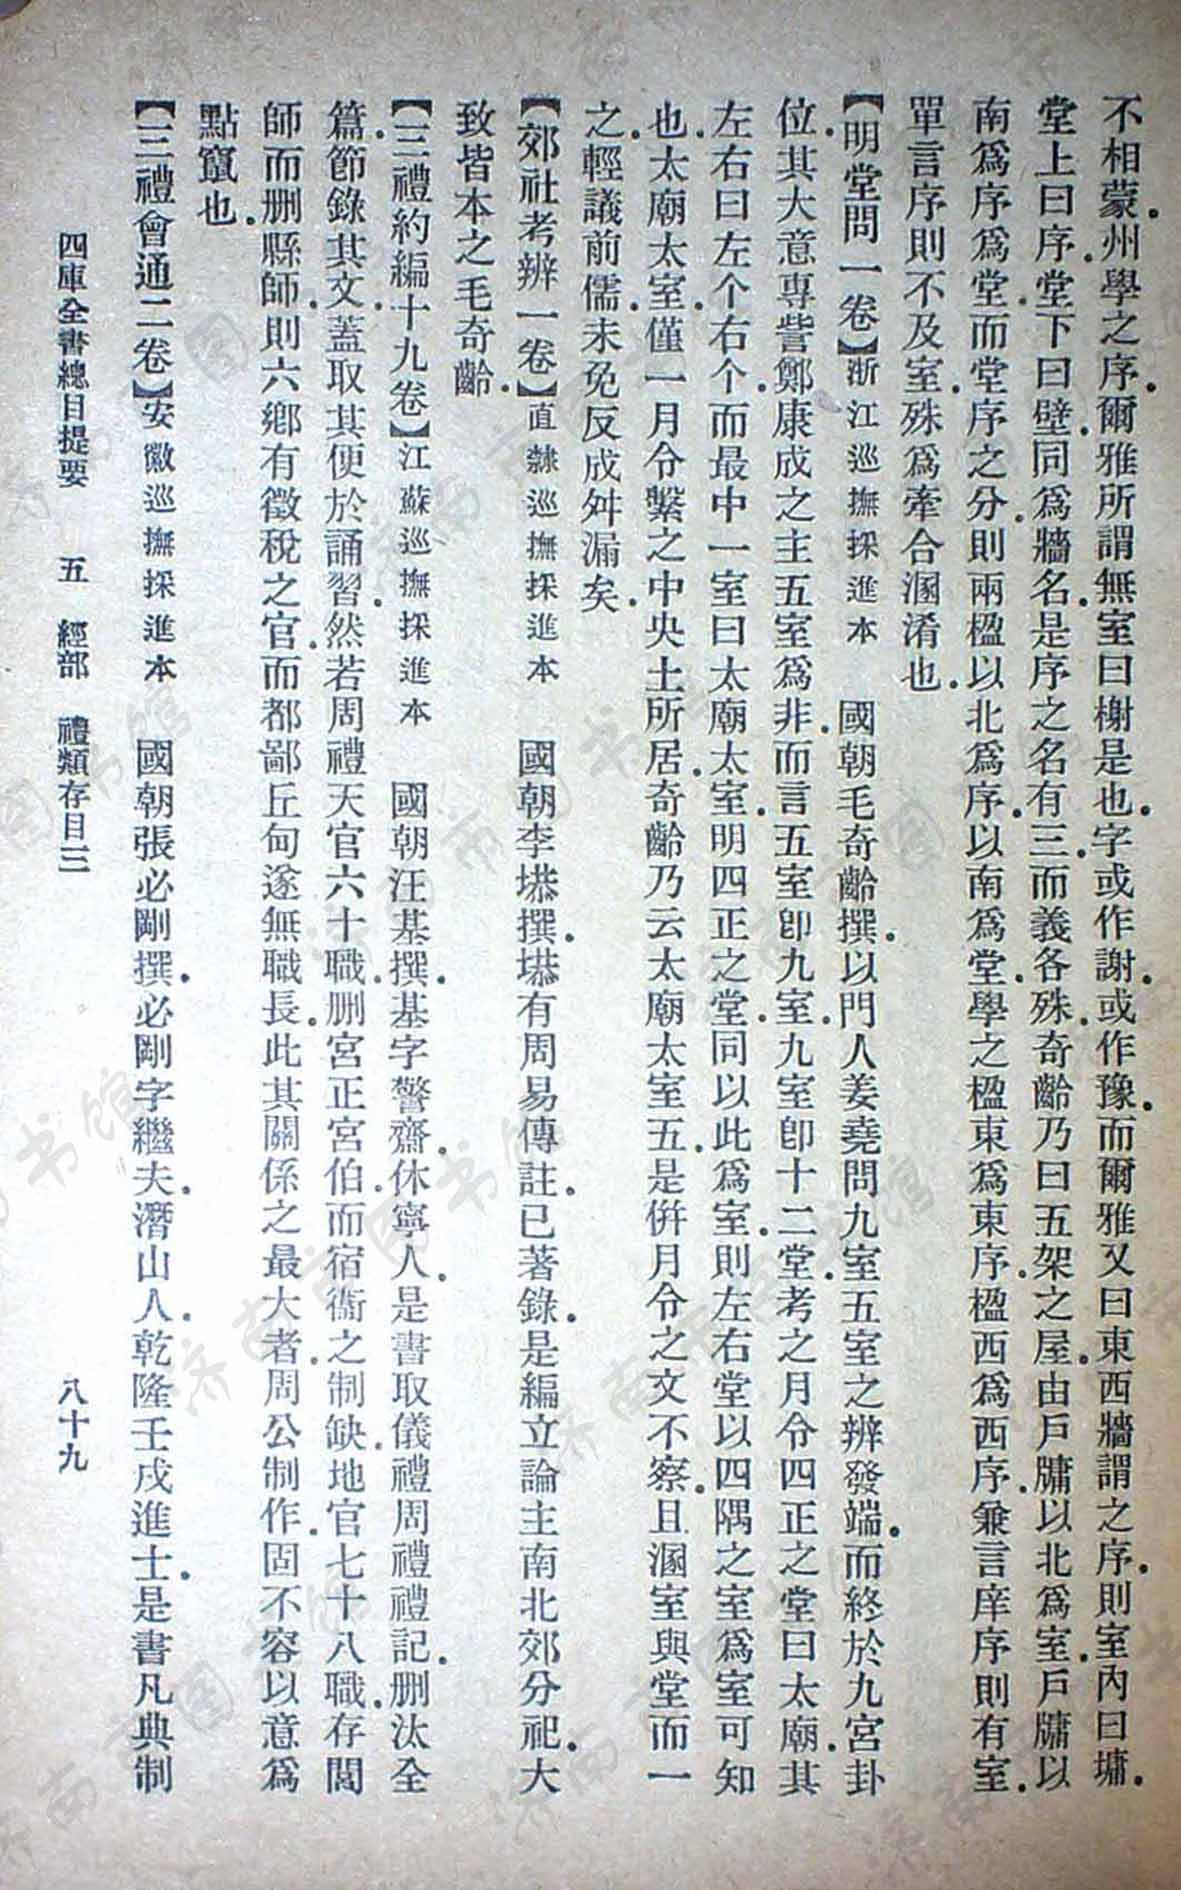 不相蒙。州學之序。爾雅所謂無室曰榭是也。字或作謝。或作豫。而爾雅又曰東西牆謂之序。則室內曰墉。
堂上曰序。堂下曰壁。同爲牆名。是序之名有三。而義各殊。奇齡乃曰五架之屋。由戶牖以北爲室。戶牖以
南爲序爲堂。而堂序之分。則兩楹以北爲序。以南爲堂。學之楹東爲東序。楹西爲西序。兼言庠序則有室。
單言序則不及室。殊爲牽合溷淆也。
【明堂問一卷】浙江巡撫採進本　國朝毛奇齡撰。以門人姜堯問九室五室之辨發端。而終於九宮卦
位。其大意專訾鄭康成之主五室爲非。而言五室卽九室。九室卽十二堂。考之月令四正之堂曰太廟。其
左右曰左个右个。而最中一室曰太廟太室。明四正之堂。同以此爲室。則左右堂以四隅之室爲室可知
也。太廟太室。僅一月令繫之中央土所居。奇齡乃云太廟太室五。是倂月令之文不察。且溷室與堂而一
之。輕議前儒。未免反成舛漏矣。
【郊社考辨一卷】直隸巡撫採進本　國朝李塨撰。塨有周易傳註。已著錄。是編立論主南北郊分祀。大
致皆本之毛奇齡。
【三禮約編十九卷】江蘇巡撫採進本　國朝汪基撰。基字警齋。休寧人。是書取儀禮周禮禮記。删汰全
篇。節錄其文。蓋取其便於誦習。然若周禮天官六十職。删宮正宮伯。而宿衞之制缺。地官七十八職。存閭
師而删縣師。則六鄉有徵稅之官。而都鄙丘甸遂無職長。此其關係之最大者。周公制作。固不容以意爲
點竄也。
【三禮會通二卷】安徽巡撫採進本　國朝張必剛撰。必剛字繼夫。潛山人。乾隆壬戌進士。是書凡典制
四庫全書總目提要　五　經部　禮類存目三　八十九
济南市图书馆